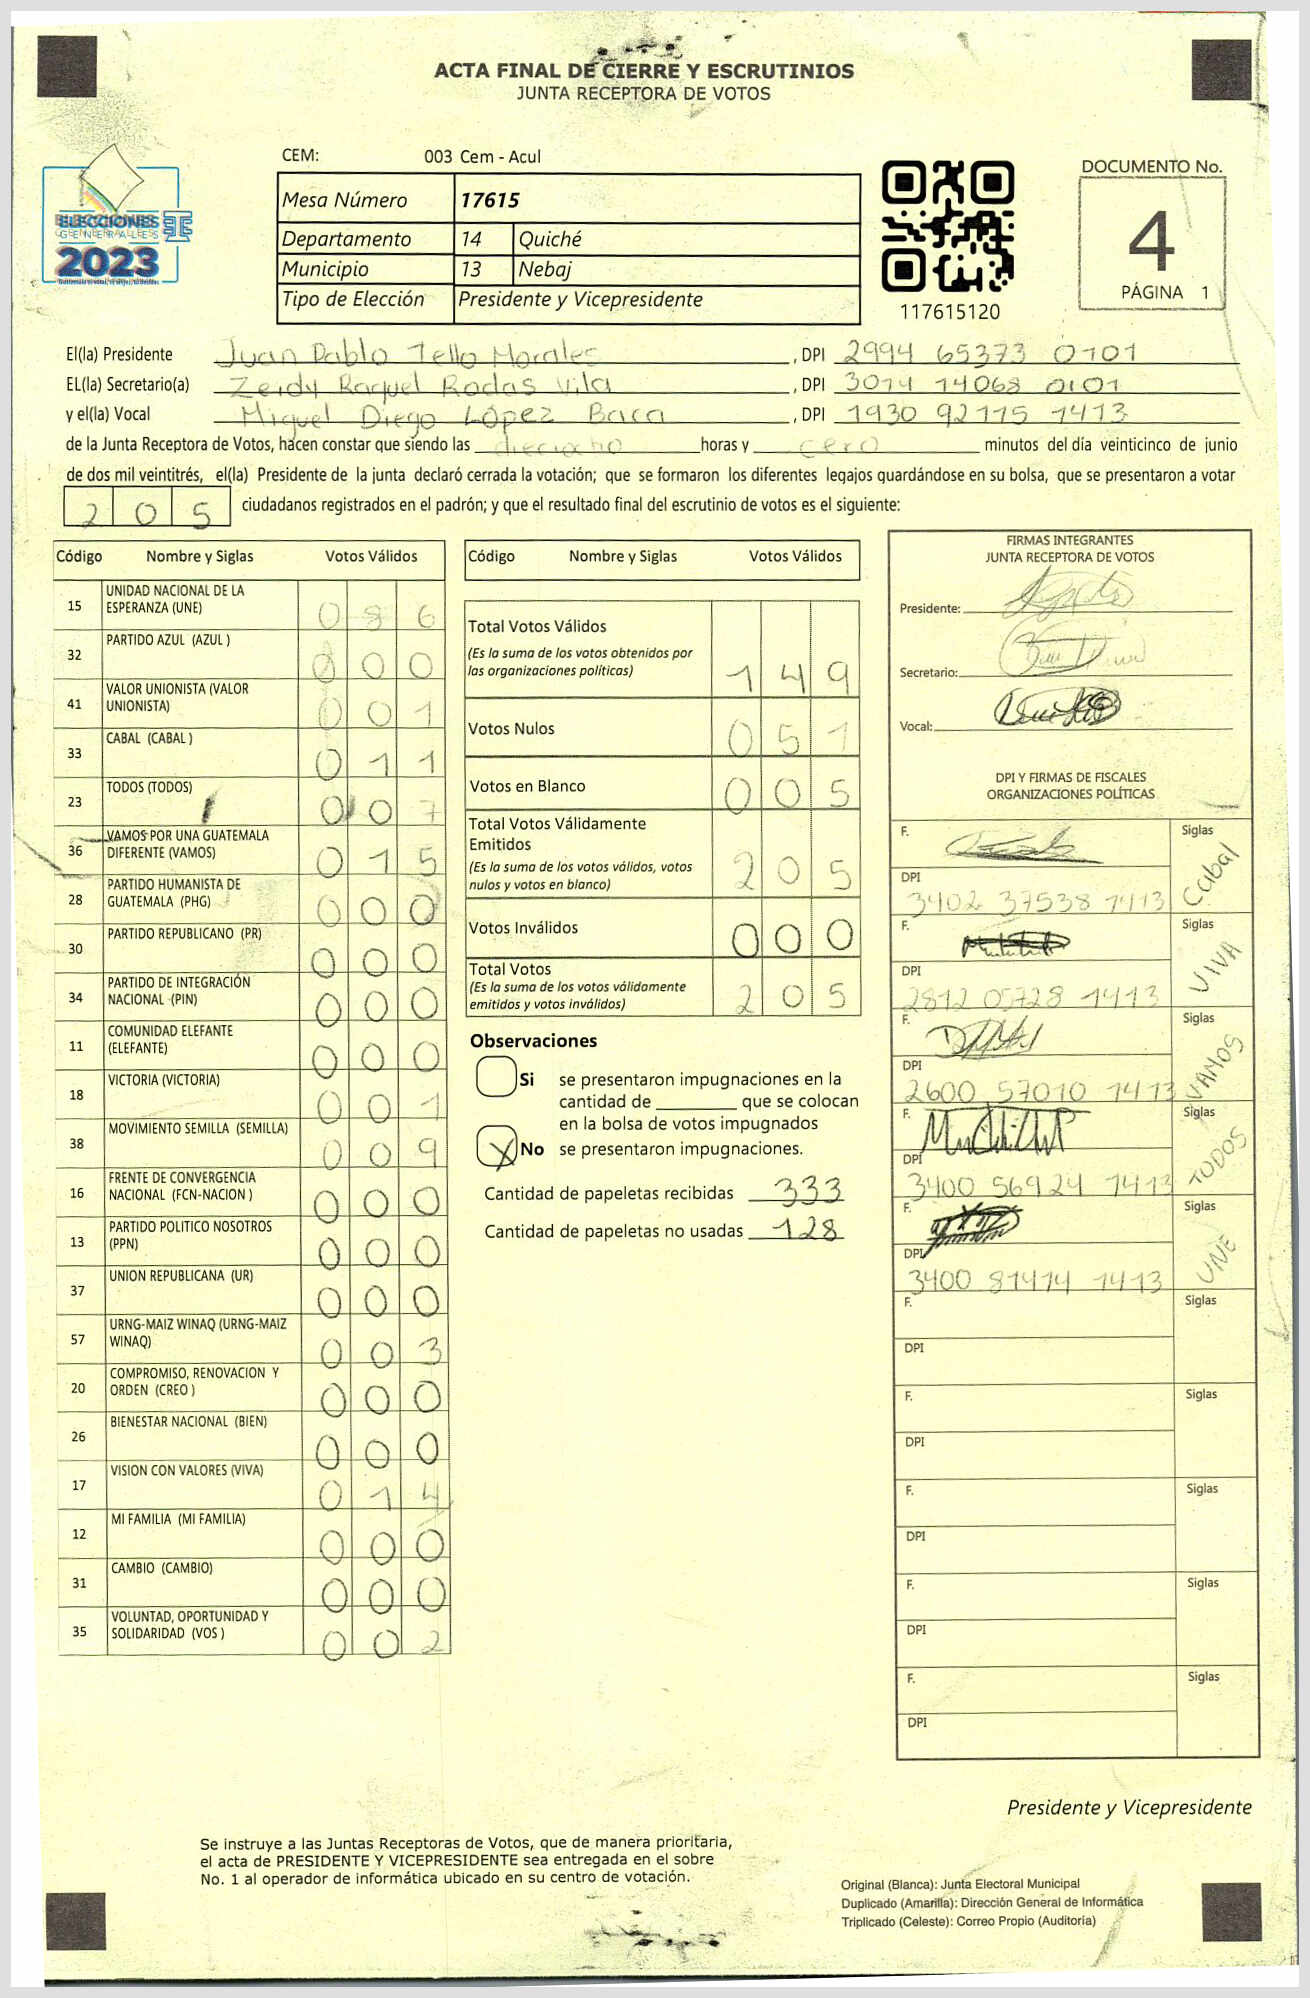 ACTA FINAL DE CIERRE Y ESCRUTINIOS
JUNTA RECEPTORA DE VOTOS
CEM: 003 Cem - Acul
DOCUMENTO No.
4
PÁGINA 1
ELECCIONES
GENERALES
2023
Mesa Número 17615
Departamento 14 Quiché
Municipio 13 Nebaj
Tipo de Elección Presidente y Vicepresidente
117615120
El(la) Presidente Juan Pablo Tello Morales, DPI 2994 65373 0101
EL(la) Secretario(a) Zeidy Raquel Rodas Vila, DPI 3014 14068 0101
y el(la) Vocal Miguel Diego López Baca, DPI 1930 92115 1413
de la Junta Receptora de Votos, hacen constar que siendo las dieciocho horas y cero minutos del día veinticinco de junio
de dos mil veintitrés, el(la) Presidente de la junta declaró cerrada la votación; que se formaron los diferentes legajos guardándose en su bolsa, que se presentaron a votar
205 ciudadanos registrados en el padrón; y que el resultado final del escrutinio de votos es el siguiente:
Código Nombre y Siglas Votos Válidos
15 UNIDAD NACIONAL DE LA ESPERANZA (UNE) 086
32 PARTIDO AZUL (AZUL ) 000
41 VALOR UNIONISTA (VALOR UNIONISTA) 001
33 CABAL (CABAL ) 011
23 TODOS (TODOS) 007
36 VAMOS POR UNA GUATEMALA DIFERENTE (VAMOS) 015
28 PARTIDO HUMANISTA DE GUATEMALA (PHG) 000
30 PARTIDO REPUBLICANO (PR) 000
34 PARTIDO DE INTEGRACIÓN NACIONAL (PIN) 000
11 COMUNIDAD ELEFANTE (ELEFANTE) 000
18 VICTORIA (VICTORIA) 001
38 MOVIMIENTO SEMILLA (SEMILLA) 009
16 FRENTE DE CONVERGENCIA NACIONAL (FCN-NACION ) 000
13 PARTIDO POLITICO NOSOTROS (PPN) 000
37 UNION REPUBLICANA (UR) 000
57 URNG-MAIZ WINAQ (URNG-MAIZ WINAQ) 003
20 COMPROMISO, RENOVACION Y ORDEN (CREO ) 000
26 BIENESTAR NACIONAL (BIEN) 000
17 VISION CON VALORES (VIVA) 014
12 MI FAMILIA (MI FAMILIA) 000
31 CAMBIO (CAMBIO) 000
35 VOLUNTAD, OPORTUNIDAD Y SOLIDARIDAD (VOS ) 002
Código Nombre y Siglas Votos Válidos
Total Votos Válidos 149
(Es la suma de los votos obtenidos por
las organizaciones políticas)
Votos Nulos 051
Votos en Blanco 005
Total Votos Válidamente
Emitidos 205
(Es la suma de los votos válidos, votos
nulos y votos en blanco)
Votos Inválidos 000
Total Votos 205
(Es la suma de los votos válidamente
emitidos y votos inválidos)
Observaciones
Si se presentaron impugnaciones en la
cantidad de ________ que se colocan
en la bolsa de votos impugnados
X No se presentaron impugnaciones.
Cantidad de papeletas recibidas 333
Cantidad de papeletas no usadas 128
FIRMAS INTEGRANTES
JUNTA RECEPTORA DE VOTOS
Presidente:
Secretario:
Vocal:
DPI Y FIRMAS DE FISCALES
ORGANIZACIONES POLÍTICAS
F. Siglas Cabal
DPI 3402 37538 1413
F. Siglas VIVA
DPI 2812 05728 1413
F. Siglas VAMOS
DPI 2600 57010 1413
F. Siglas TODOS
DPI 3400 56924 1413
F. Siglas UNE
DPI 3400 81414 1413
F. Siglas
DPI
F. Siglas
DPI
F. Siglas
DPI
F. Siglas
DPI
F. Siglas
DPI
Presidente y Vicepresidente
Se instruye a las Juntas Receptoras de Votos, que de manera prioritaria,
el acta de PRESIDENTE Y VICEPRESIDENTE sea entregada en el sobre
No. 1 al operador de informática ubicado en su centro de votación.
Original (Blanca): Junta Electoral Municipal
Duplicado (Amarilla): Dirección General de Informática
Triplicado (Celeste): Correo Propio (Auditoría)